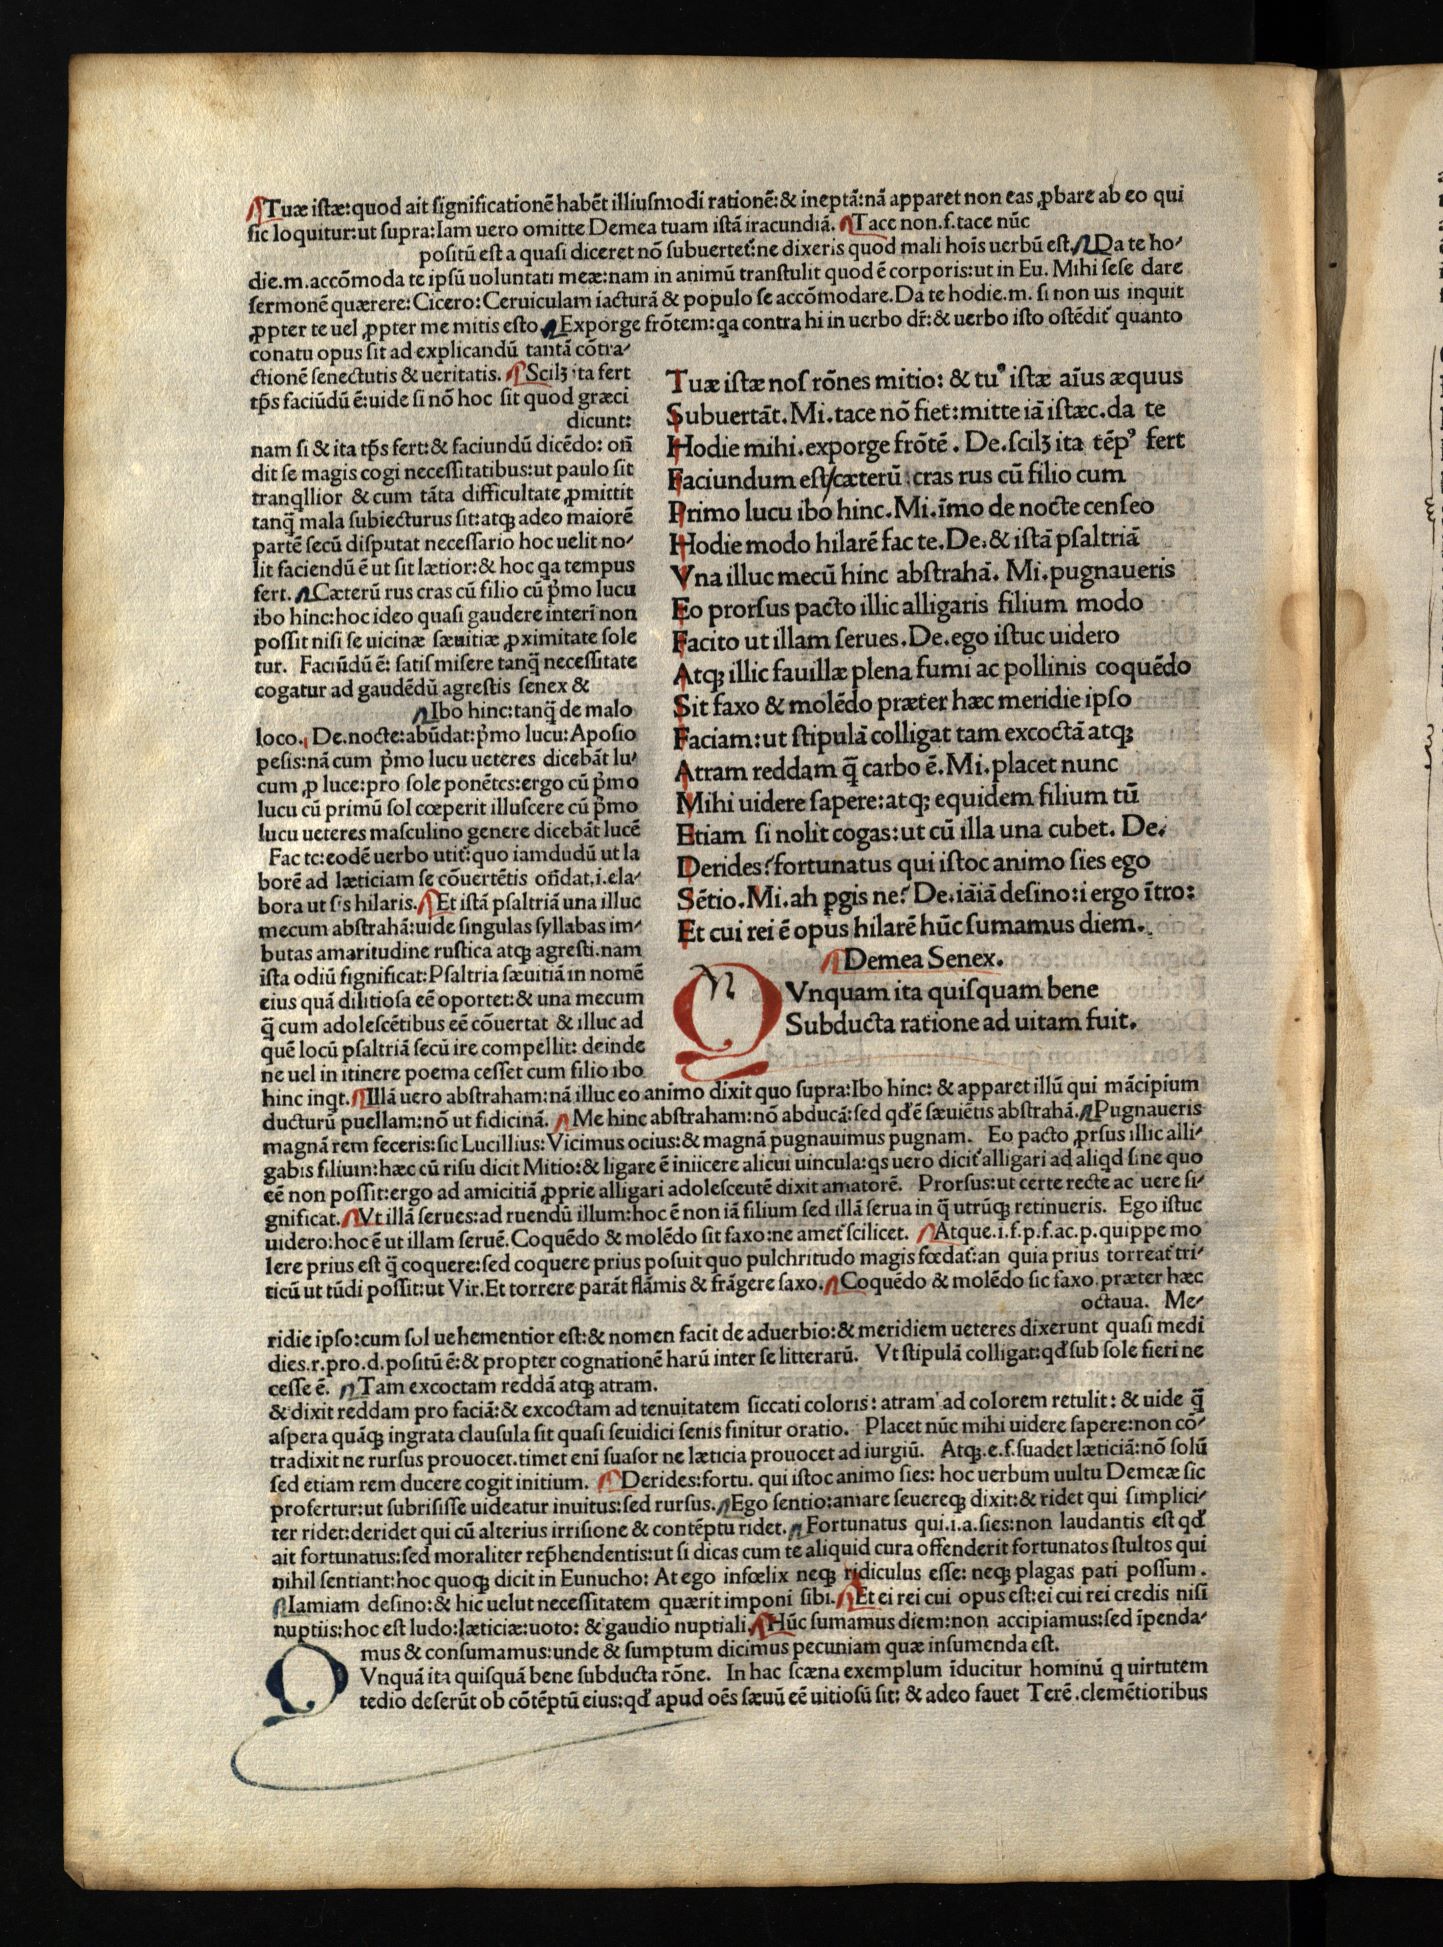 Tuæ istæ: quod ait significationē habēt illiusmodi rationē: & ineptā: nā apparet non eas ꝓbare ab eo qui
sic loquitur: ut supra: Iam uero omitte Demea tuam istā iracundiā. Tace non. f. tace nūc
positū est a quasi diceret nō subuertet̃: ne dixeris quod mali hoīs uerbū est. Da te ho-
die. m. accōmoda te ipsū uoluntati meæ: nam in animū transtulit quod ē corporis: ut in Eu. Mihi sese dare
sermonē quærere: Cicero: Ceruiculam iacturā & populo se accōmodare. Da te hodie. m. si non uis inquit
ꝓpter te uel ꝓpter me mitis esto. Exporge frōtem: qa contra hi in uerbo dr̄: & uerbo isto ostēdit̃ quanto
conatu opus sit ad explicandū tantā cōtra-
ctionē senectutis & ueritatis. Scilꝫ ita fert
tp̄s faciūdū ē: uide si nō hoc sit quod græci
dicunt:
nam si & ita tp̄s fert: & faciundū dicēdo: on̄
dit se magis cogi necessitatibus: ut paulo sit
tranqllior & cum tāta difficultate ꝓmittit
tanq̄ mala subiecturus sit: atqꝫ adeo maiorē
partē secū disputat necessario hoc uelit no-
lit faciendū ē ut sit lætior: & hoc qa tempus
fert. Cæterū rus cras cū filio cū p̄mo lucu
ibo hinc: hoc ideo quasi gaudere interī non
possit nisi se uicinæ sæuitiæ ꝓximitate sole
tur. Faciūdū ē: satis misere tanq̄ necessitate
cogatur ad gaudēdū agrestis senex &
Ibo hinc: tanq̄ de malo
loco. De. nocte: abūdat: p̄mo lucu: Aposio
pesis: nā cum p̄mo lucu ueteres dicebāt lu-
cum ꝓ luce: pro sole ponētes: ergo cū p̄mo
lucu cū primū sol cœperit illuscere cū p̄mo
lucu ueteres masculino genere dicebāt lucē
Fac te: eodē uerbo utit̃: quo iamdudū ut la
borē ad læticiam se cōuertētis on̄dat. i. ela-
bora ut sis hilaris. Et istā psaltriā una illuc
mecum abstrahā: uide singulas syllabas im-
butas amaritudine rustica atqꝫ agresti. nam
ista odiū significat: Psaltria sæuitiā in nomē
eius quā dilitiosa eē oportet: & una mecum
q̄ cum adolescētibus eē cōuertat & illuc ad
quē locū psaltriā secū ire compellit: deinde
ne uel in itinere poema cesset cum filio ibo
Tuæ istæ nos rōnes mitio: & tuꝰ istæ aīus æquus
Subuertāt. Mi. tace nō fiet: mitte iā istæc. da te
Hodie mihi. exporge frōtē. De. scilꝫ ita tēpꝰ fert
Faciundum est/cæterū: cras rus cū filio cum
Primo lucu ibo hinc. Mi. īmo de nocte censeo
Hodie modo hilarē fac te. De. & istā psaltriā
Vna illuc mecū hinc abstrahā. Mi. pugnaueris
Eo prorsus pacto illic alligaris filium modo
Facito ut illam serues. De. ego istuc uidero
Atqꝫ illic fauillæ plena fumi ac pollinis coquēdo
Sit faxo & molēdo præter hæc meridie ipso
Faciam: ut stipulā colligat tam excoctā atqꝫ
Atram reddam q̄ carbo ē. Mi. placet nunc
Mihi uidere sapere: atqꝫ equidem filium tū
Etiam si nolit cogas: ut cū illa una cubet. De.
Derides? fortunatus qui istoc animo sies ego
Sētio. Mi. ah ꝑgis ne? De. iāiā desino: i ergo ītro:
Et cui rei ē opus hilarē hūc sumamus diem.
Demea Senex.
QVnquam ita quisquam bene
Subducta ratione ad uitam fuit.
hinc inqt. Illā uero abstraham: nā illuc eo animo dixit quo supra: Ibo hinc: & apparet illū qui mācipium
ducturū puellam: nō ut fidicinā. Me hinc abstraham: nō abducā: sed qd̄ ē sæuiētis abstrahā. Pugnaueris
magnā rem feceris: sic Lucillius: Vicimus ocius: & magnā pugnauimus pugnam. Eo pacto ꝓrsus illic alli-
gabis filium: hæc cū risu dicit Mitio: & ligare ē iniicere alicui uincula: qs uero dicit̃ alligari ad aliqd sine quo
eē non possit: ergo ad amicitiā ꝓprie alligari adolesceutē dixit amatorē. Prorsus: ut certe recte ac uere si-
gnificat. Vt illā serues: ad ruendū illum: hoc ē non iā filium sed illā serua in q̄ utrūqꝫ retinueris. Ego istuc
uidero: hoc ē ut illam seruē. Coquēdo & molēdo sit faxo: ne amet̃ scilicet. Atque. i. f. p. f. ac. p. quippe mo
lere prius est q̄ coquere: sed coquere prius posuit quo pulchritudo magis fœdat̃: an quia prius torreat̃ tri-
ticū ut tūdi possit: ut Vir. Et torrere parāt flāmis & frāgere saxo. Coquēdo & molēdo sic faxo. præter hæc
octaua. Me-
ridie ipso: cum sol uehementior est: & nomen facit de aduerbio: & meridiem ueteres dixerunt quasi medi
dies. r. pro. d. positū ē: & propter cognationē harū inter se litterarū. Vt stipulā colligat: qd̄ sub sole fieri ne
cesse ē. Tam excoctam reddā atqꝫ atram.
& dixit reddam pro faciā: & excoctam ad tenuitatem siccati coloris: atram ad colorem retulit: & uide q̄
aspera quāqꝫ ingrata clausula sit quasi seuidici senis finitur oratio. Placet nūc mihi uidere sapere: non cō-
tradixit ne rursus prouocet. timet enī suasor ne læticia prouocet ad iurgiū. Atqꝫ. e. f. suadet læticiā: nō solū
sed etiam rem ducere cogit initium. Derides: fortu. qui istoc animo sies: hoc uerbum uultu Demeæ sic
profertur: ut subrisisse uideatur inuitus: sed rursus. Ego sentio: amare seuereqꝫ dixit: & ridet qui simplici-
ter ridet: deridet qui cū alterius irrisione & contēptu ridet. Fortunatus qui. i. a. sies: non laudantis est qd̄
ait fortunatus: sed moraliter rep̄hendentis: ut si dicas cum te aliquid cura offenderit fortunatos stultos qui
nihil sentiant: hoc quoqꝫ dicit in Eunucho: At ego infœlix neqꝫ ridiculus esse: neqꝫ plagas pati possum.
Iamiam desino: & hic uelut necessitatem quærit imponi sibi. Et ei rei cui opus est: ei cui rei credis nisi
nuptiis: hoc est ludo: læticiæ: uoto: & gaudio nuptiali. Hūc sumamus diem: non accipiamus: sed īpenda-
mus & consumamus: unde & sumptum dicimus pecuniam quæ insumenda est.
QVnquā ita quisquā bene subducta rōne. In hac scæna exemplum īducitur hominū q uirtutem
tedio deserūt ob cōtēptū eius: qd̄ apud oēs sæuū eē uitiosū sit: & adeo fauet Terē. clemētioribus